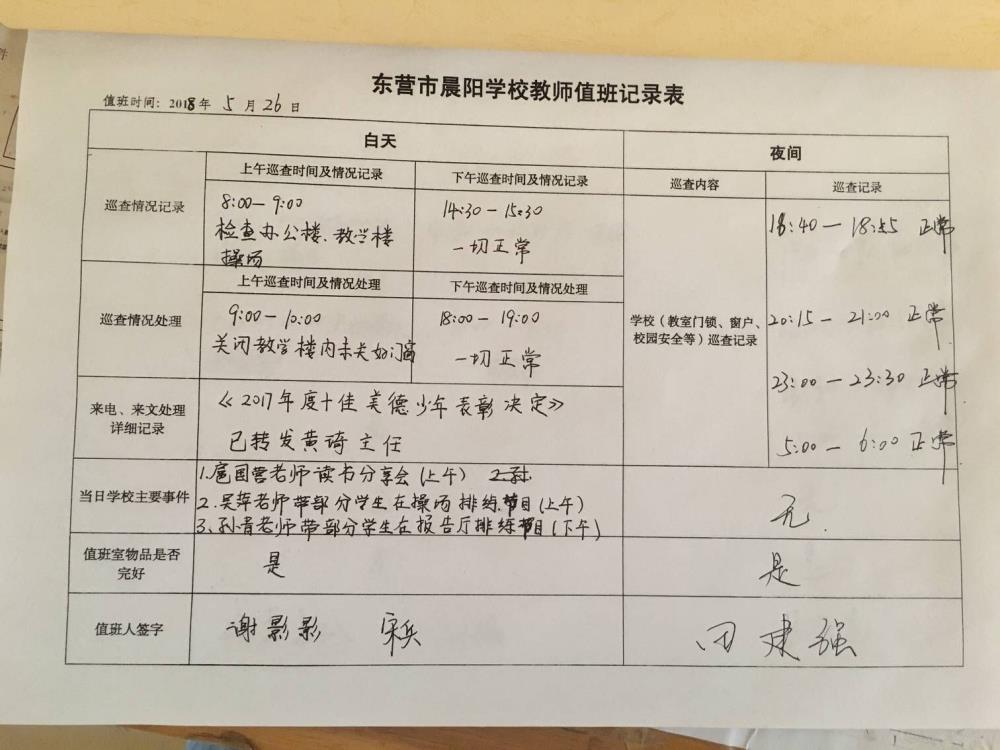 东营市晨阳学校教师值班记录表
值班时间：2018年 5 月 26 日
白天
夜间
巡查情况记录
上午巡查时间及情况记录
下午巡查时间及情况记录
巡查内容
巡查记录
8:00—9:00
检查办公楼、教学楼
操场
14:30—15:30
一切正常
18:40—18:55 正常
巡查情况处理
上午巡查时间及情况处理
下午巡查时间及情况处理
9:00—10:00
关闭教学楼内未关好门窗
18:00—19:00
一切正常
学校（教室门锁、窗户、
校园安全等）巡查记录
20:15—21:00 正常
23:00—23:30 正常
5:00—6:00 正常
来电、来文处理
详细记录
《2017年度十佳美德少年表彰决定》
已转发黄琦主任
当日学校主要事件
1.扈国营老师读书分享会(上午)
2.吴萍老师带部分学生在操场排练节目(上午)
3.孙青老师带部分学生在报告厅排练节目(下午)
无.
值班室物品是否
完好
是
是
值班人签字
谢影影 宋兵
田建强